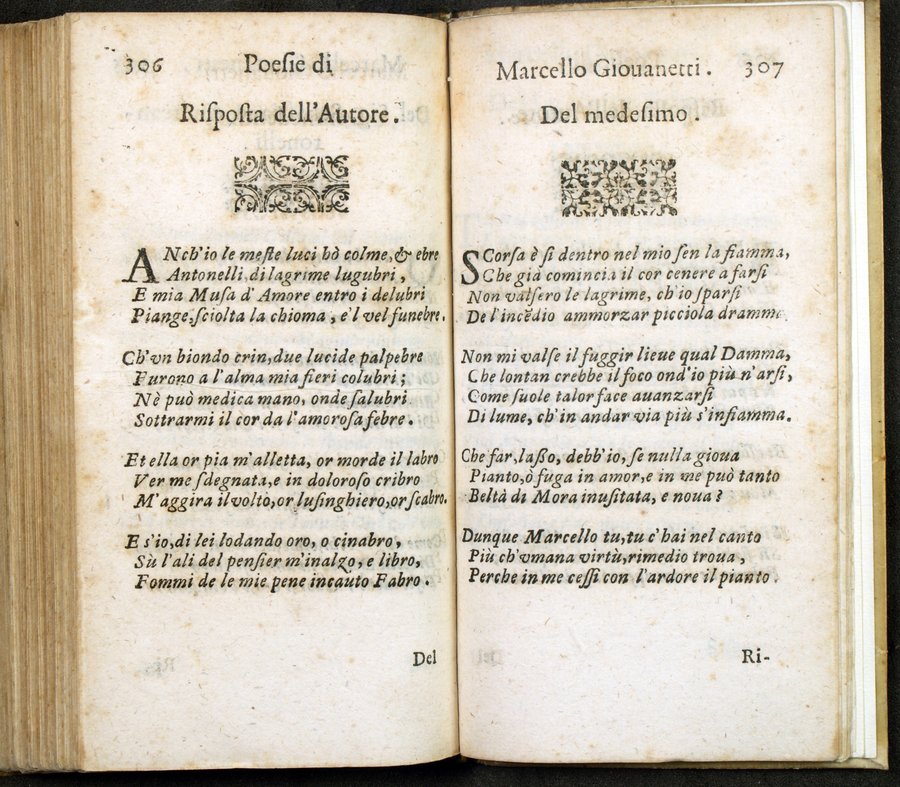 306 Poeſie di
Riſpoſta dell'Autore.
ANch'io le meſte luci hò colme, & ebre
Antonelli, di lagrime lugubri,
E mia Muſa d'Amore entro i delubri
Piange, ſciolta la chioma, e'l vel funebre.
Ch'vn biondo crin, due lucide palpebre
Furono a l'alma mia fieri colubri;
Nè può medica mano, onde ſalubri
Sottrarmi il cor da l'amoroſa febre.
Et ella or pia m'alletta, or morde il labro
Ver me ſdegnata, e in doloroſo cribro
M'aggira il volto, or luſinghiero, or ſcabro.
E s'io, di lei lodando oro, o cinabro,
Sù l'ali del penſier m'inalzo, e libro,
Fommi de le mie pene incauto Fabro.
Del
Marcello Giouanetti. 307
Del medeſimo.
SCorſa è ſi dentro nel mio ſen la fiamma,
Che già comincia il cor cenere a farſi
Non valſero le lagrime, ch'io ſparſi
De l'incẽdio ammorzar picciola dramma
Non mi valſe il fuggir lieue qual Damma,
Che lontan crebbe il foco ond'io più n'arſi,
Come ſuole talor face auanzarſi
Di lume, ch'in andar via più s'infiamma.
Che far, laſſo, debb'io, ſe nulla gioua
Pianto, ò fuga in amor, e in me può tanto
Beltà di Mora inuſitata, e noua?
Dunque Marcello tu, tu c'hai nel canto
Più ch'vmana virtù, rimedio troua,
Perche in me ceſſi con l'ardore il pianto.
Ri-